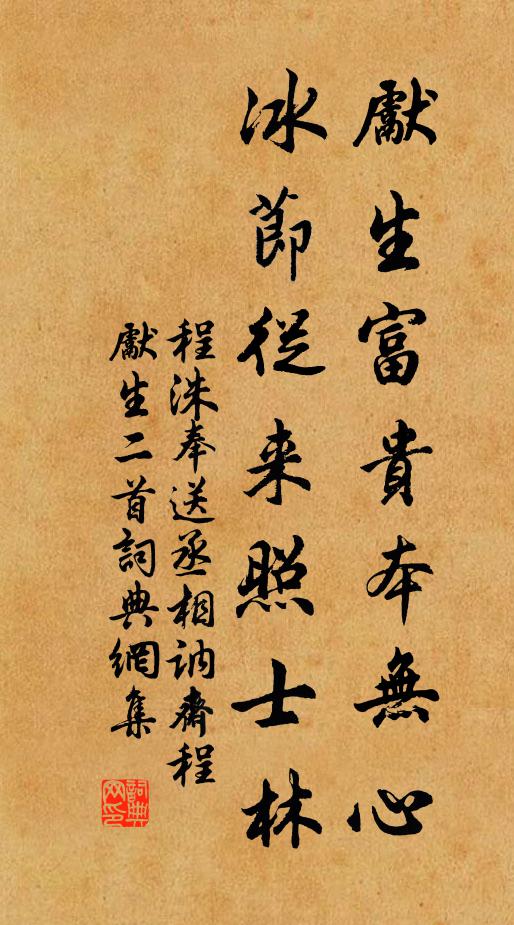 獻生富貴本無心
冰節從来照士林
程洙奉送丞相訥齋程
獻生二首詞典網集
詞典
网印